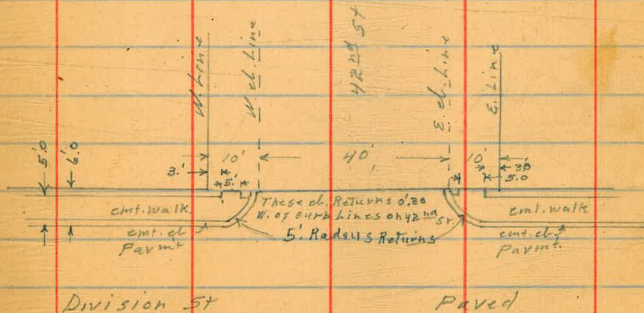 W. Line
W. cb. Line
42nd St
E. cb. Line
E. Line
5'.0
6'.0
3'.
10'
5'.
40'
10'
3.0
5.0
These cb. Returns 0'.20
W. of curb Lines on 42nd St
cmt. walk
cmt. cb
Pavmt
5'. Radius Returns
cmt. walk
cmt. cb. &
Pavmt.
Division St
Paved